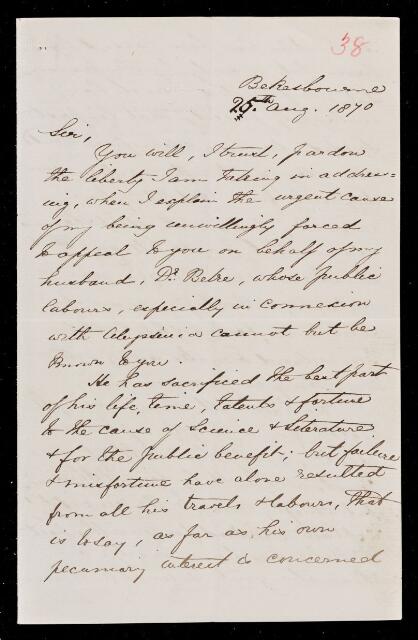 38
Bekesbourne
25th Aug. 1870
Sir,
You will, I trust, pardon
the liberty I am taking in address-
ing, when I explain the urgent cause
of my being unwillingly forced
to appeal to you on behalf of my
husband, Dr. Beke, whose public
labours, especially in connexion
with Abyssinia cannot but be
known to you.
He has sacrificed the best part
of his life, time, talents & fortune
to the cause of Science & Literature
& for the public benefit; but failure
& misfortune have alone resulted
from all his travels & labours, that
is to say, as far as his own
pecuniary interest is concerned